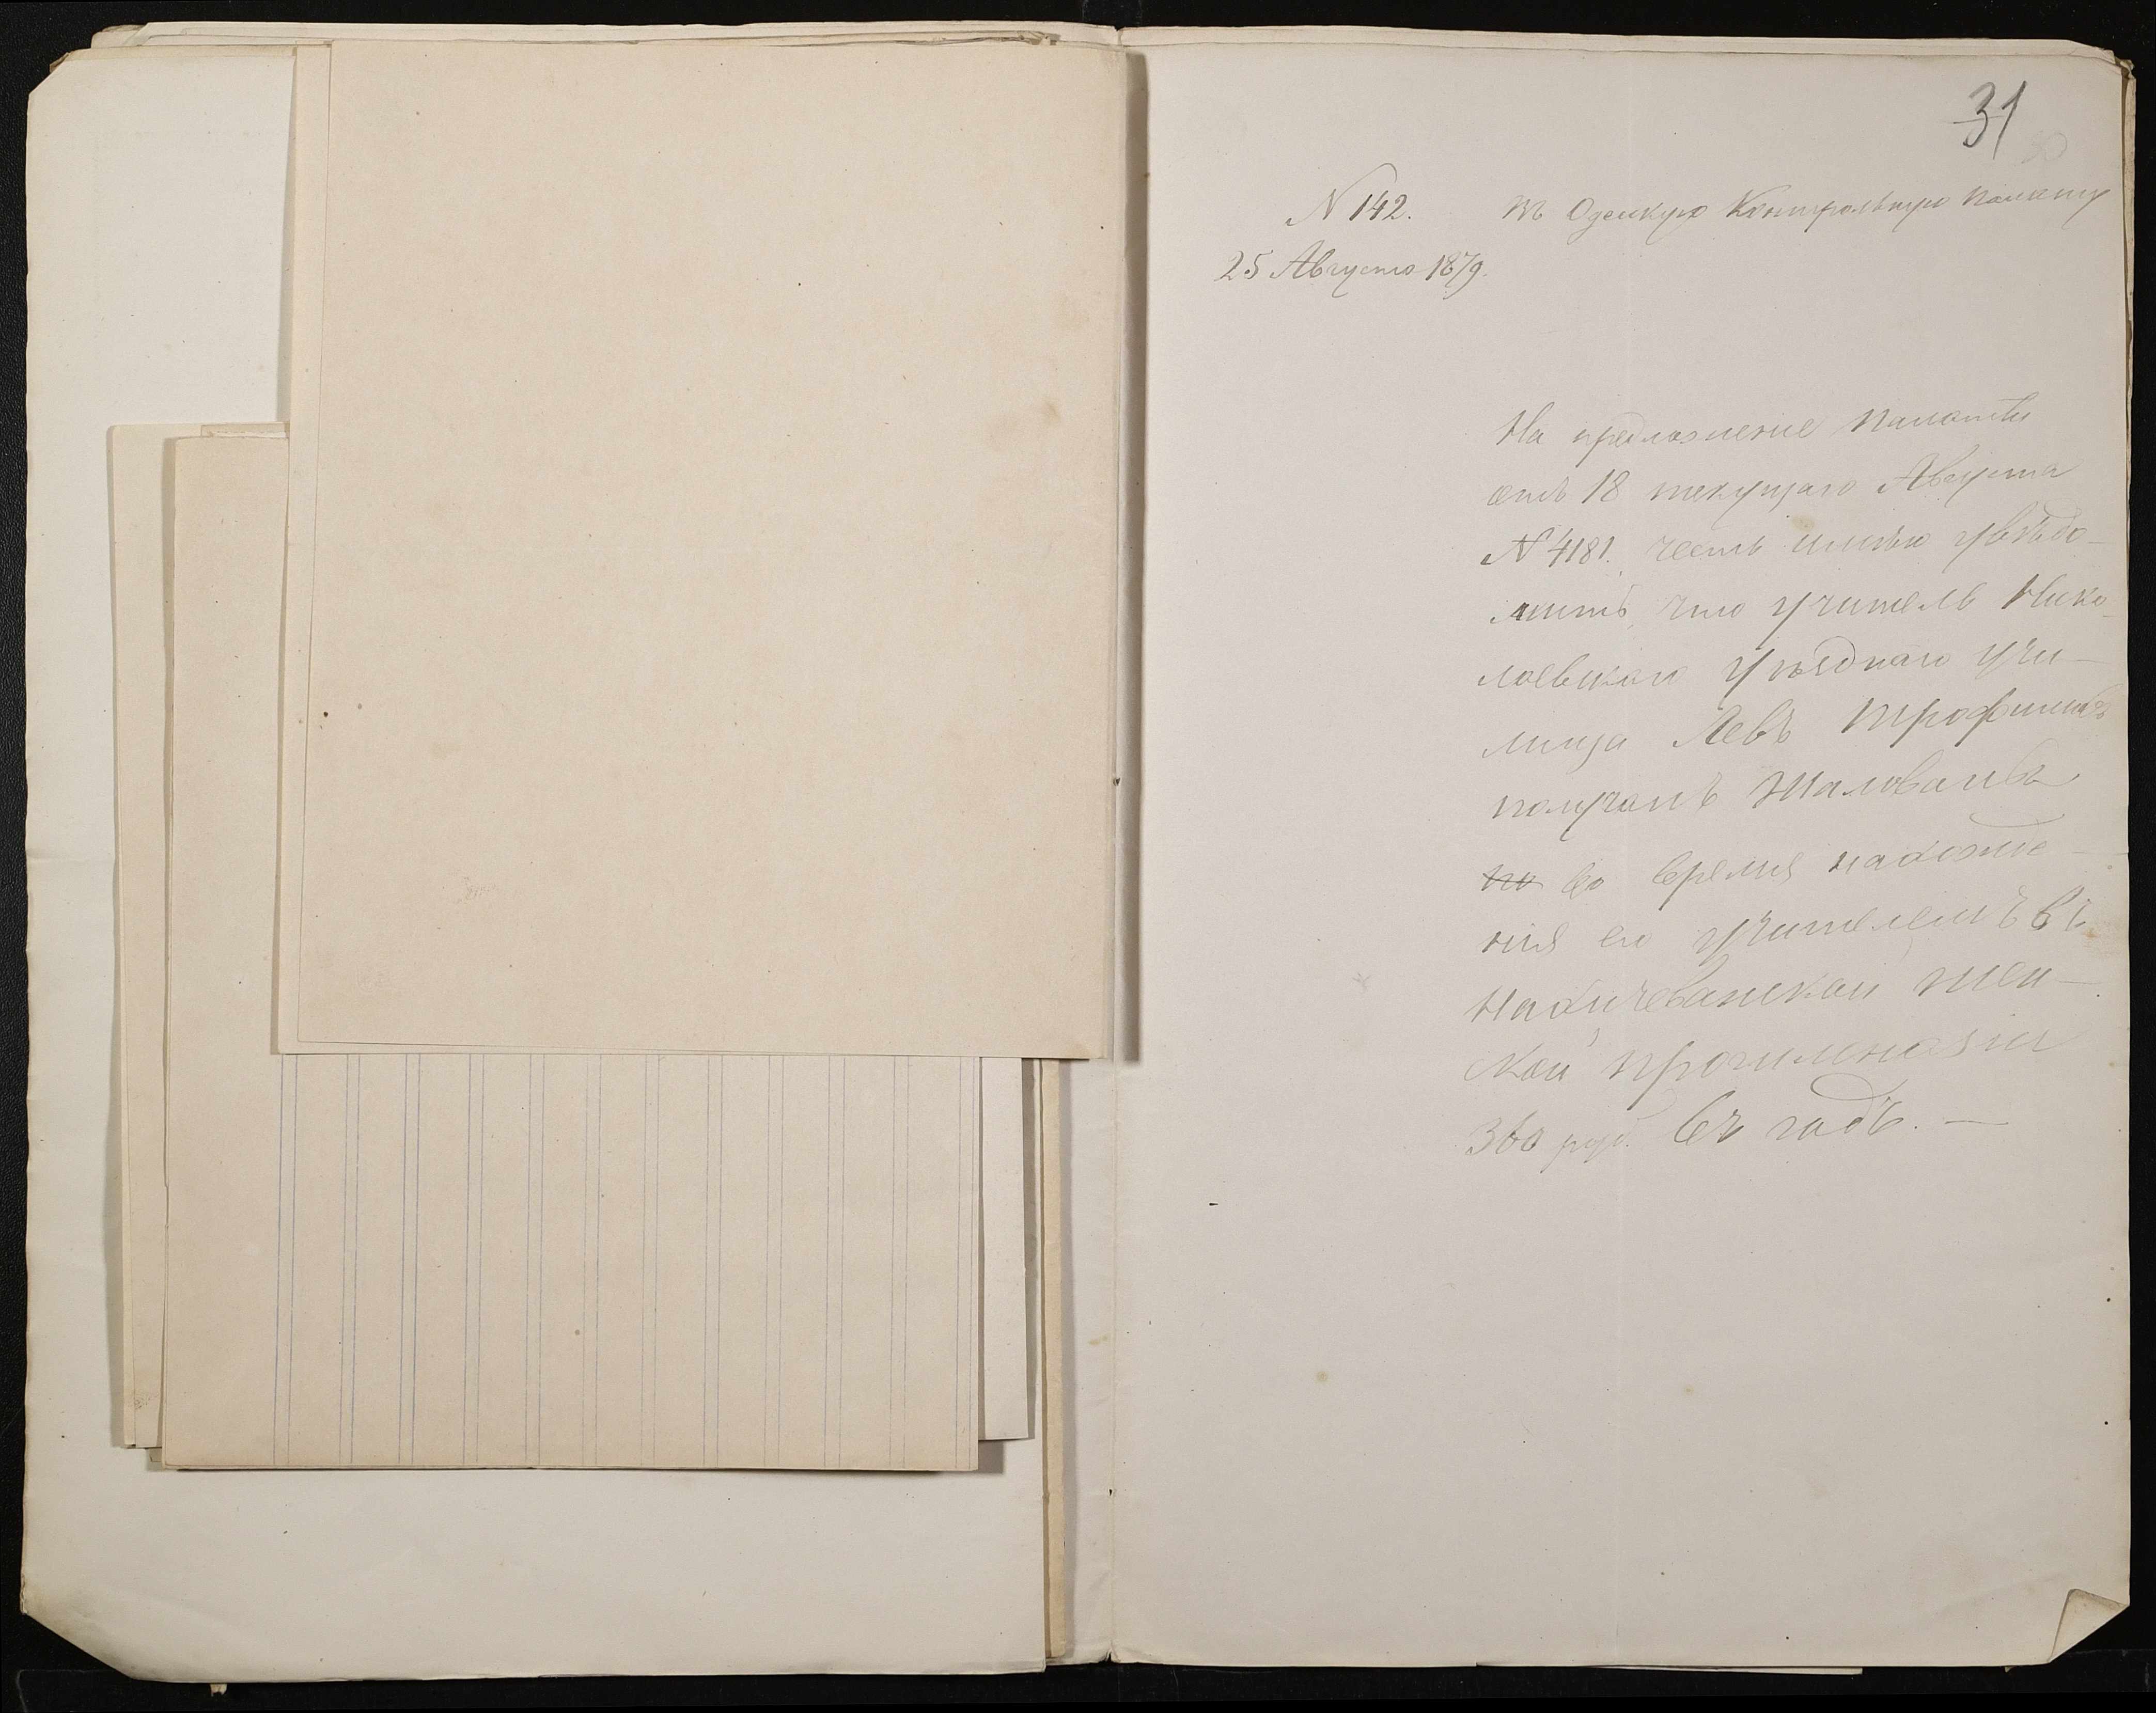 31
N 142. Въ Одескую Контрольную Палату
25 Августа 1879.
На предложение Палаты
отъ 18 текущаго Августа
N 4181. честь имѣю увѣдо-
мить, что учитель Нико-
лаевскаго уѣзднаго учи-
лища Левъ Трофимовъ
получалъ жалованья
по во время нахожде-
ния его учителемъ въ
Нахичеванской жен-
ской прогимназии
360 руб. въ годъ. —